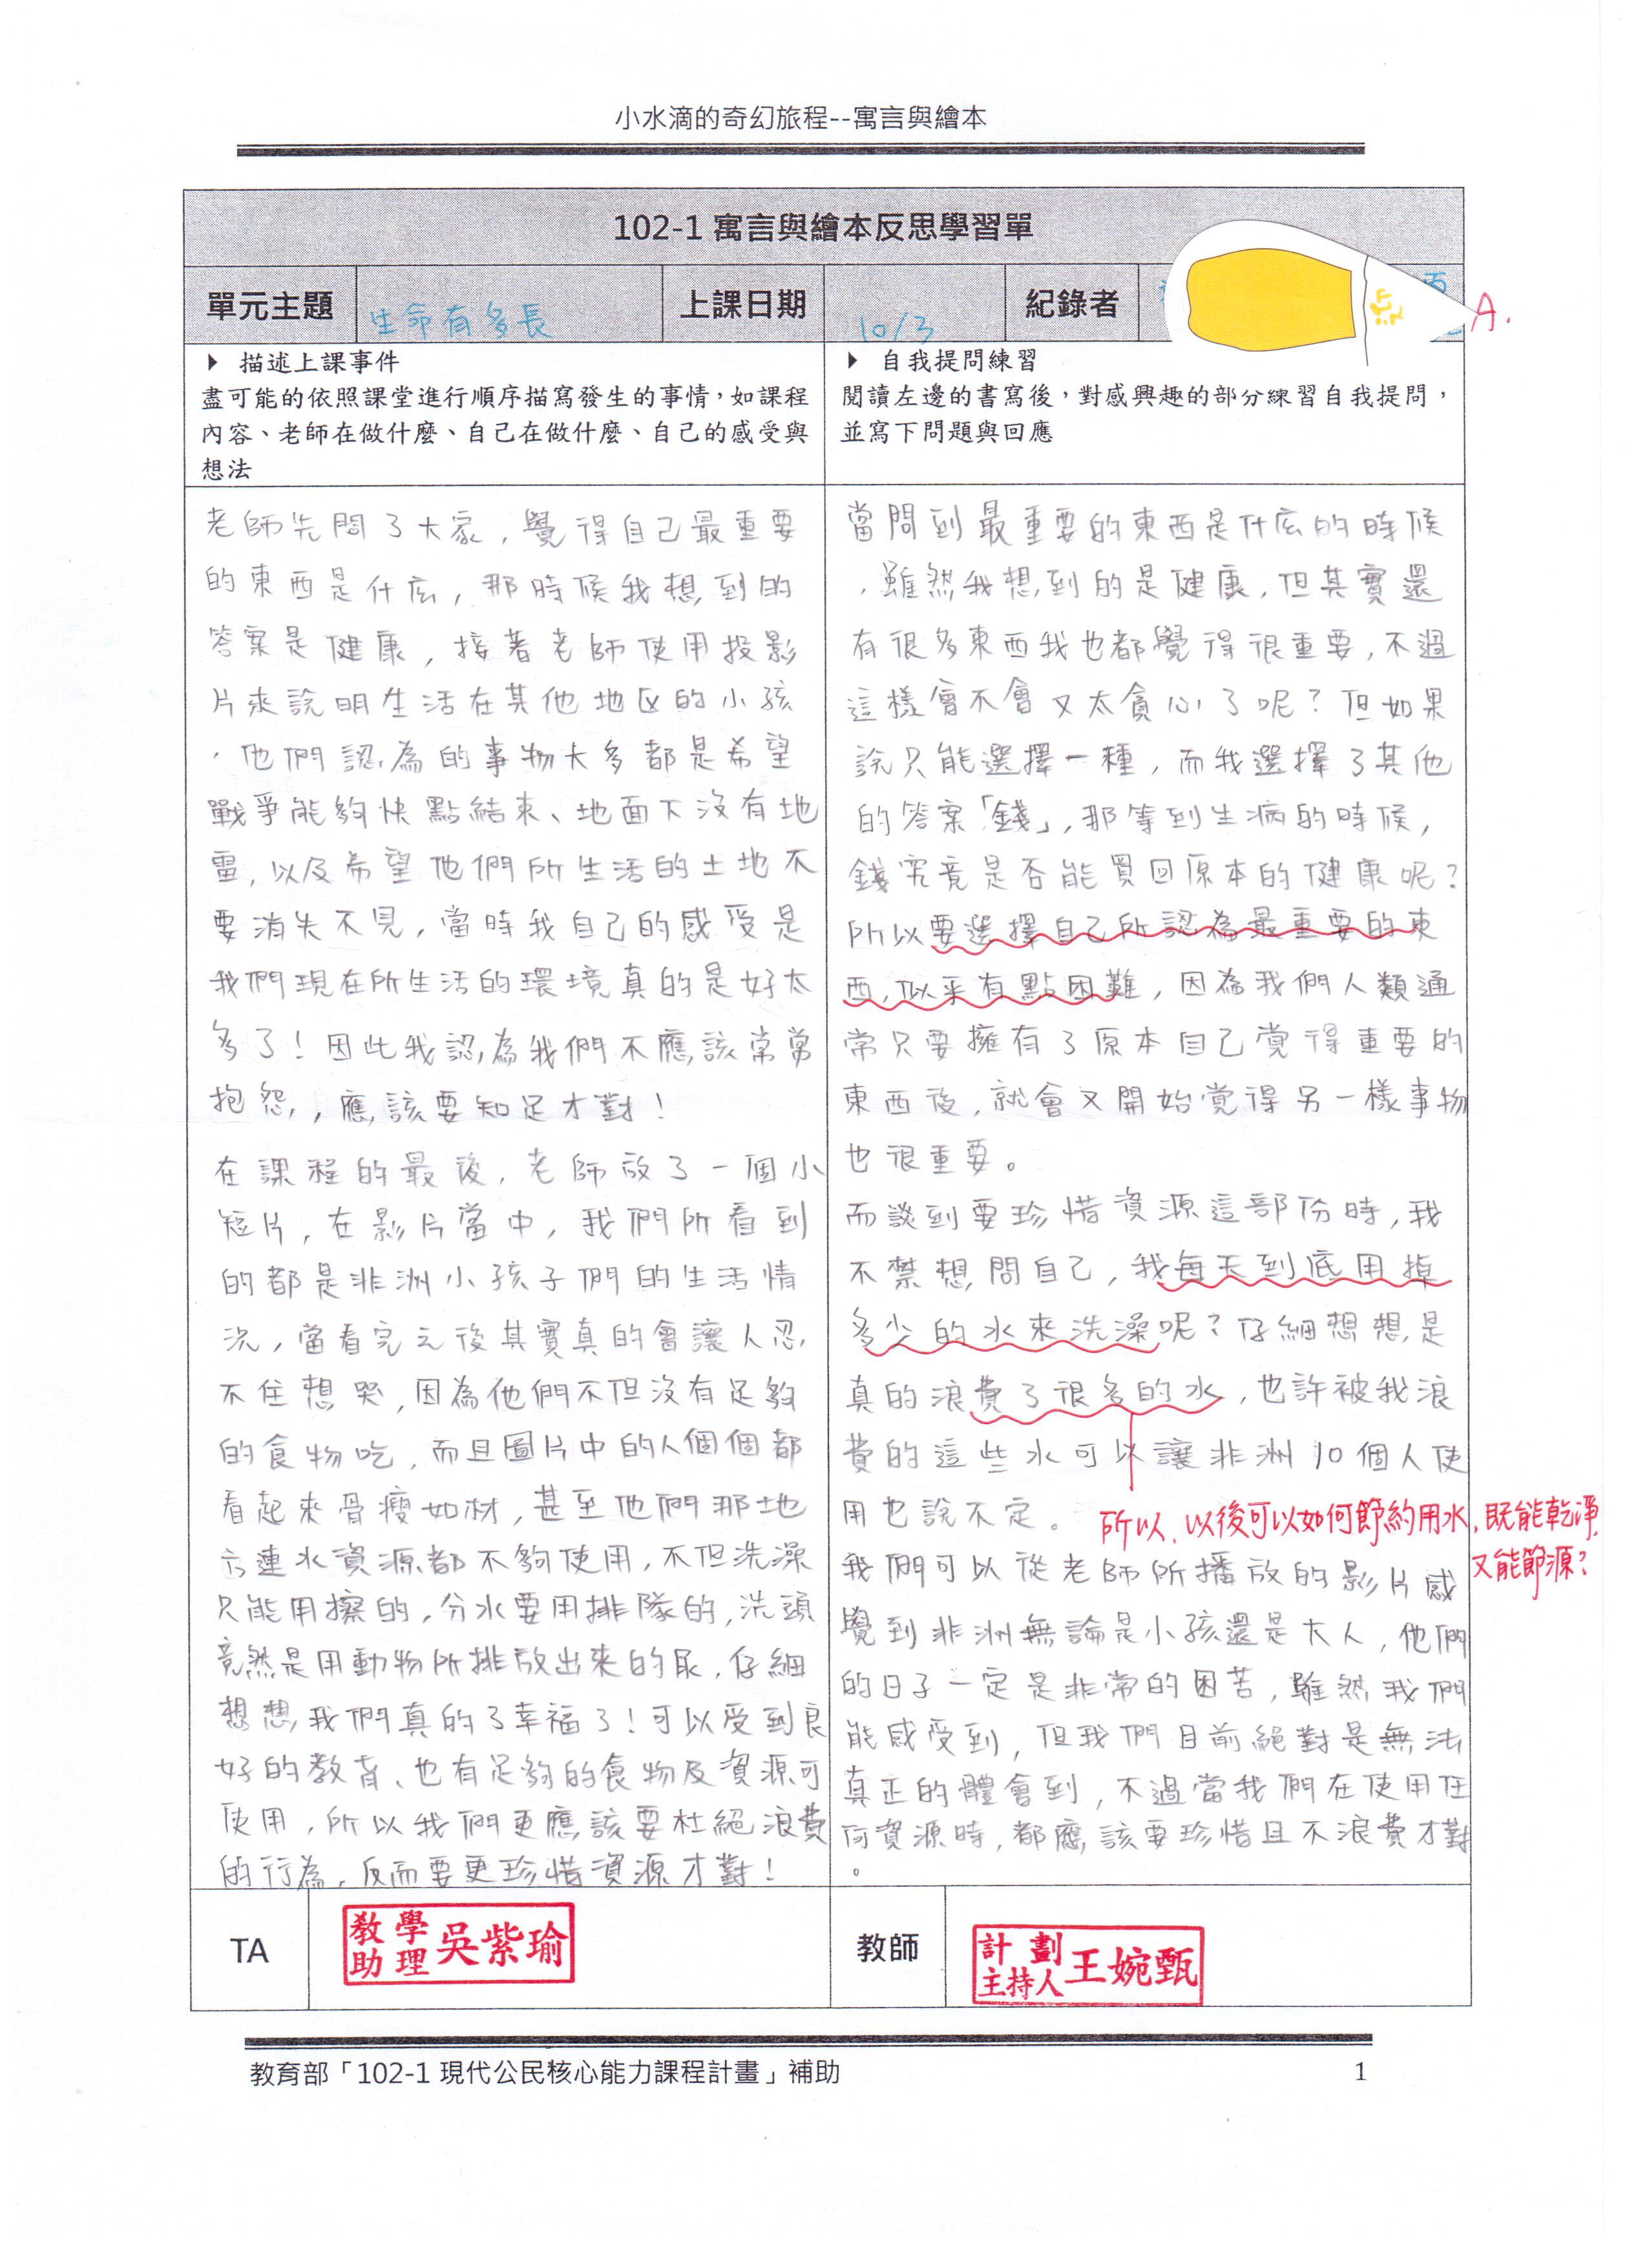 小水滴的奇幻旅程--寓言與繪本
102-1 寓言與繪本反思學習單
單元主題
生命有多長
上課日期
10/3
紀錄者
A.
▶ 描述上課事件
盡可能的依照課堂進行順序描寫發生的事情，如課程
內容、老師在做什麼、自己在做什麼、自己的感受與
想法
▶ 自我提問練習
閱讀左邊的書寫後，對感興趣的部分練習自我提問，
並寫下問題與回應
老師先問了大家，覺得自己最重要
的東西是什庅，那時候我想到的
答案是健康，接著老師使用投影
片來說明生活在其他地区的小孩
，他們認為的事物大多都是希望
戰爭能夠快點結束、地面下沒有地
雷，以及希望他們所生活的土地不
要消失不見，當時我自己的感受是
我們現在所生活的環境真的是好太
多了！因此我認為我們不應該常常
抱怨，應該要知足才對！
在課程的最後，老師放了一個小
短片，在影片當中，我們所看到
的都是非洲小孩子們的生活情
況，當看完之後其實真的會讓人忍
不住想哭，因為他們不但沒有足夠
的食物吃，而且圖片中的人個個都
看起來骨瘦如材，甚至他們那地
方連水資源都不夠使用，不但洗澡
只能用擦的，分水要用排隊的，洗頭
竟然是用動物所排放出來的尿，仔細
想想，我們真的了幸福了！可以受到良
好的教育、也有足夠的食物及資源可
使用，所以我們更應該要杜絕浪費
的行為，反而要更珍惜資源才對！
當問到最重要的東西是什庅的時候
，雖然我想到的是健康，但其實還
有很多東西我也都覺得很重要，不過
這樣會不會又太貪心了呢？但如果
說只能選擇一種，而我選擇了其他
的答案「錢」，那等到生病的時候，
錢究竟是否能買回原本的健康呢？
所以要選擇自己所認為最重要的東
西，似乎有點困難，因為我們人類通
常只要擁有了原本自己覚得重要的
東西後，就會又開始覚得另一樣事物
也很重要。
而談到要珍惜資源這部份時，我
不禁想問自己，我每天到底用掉
多少的水來洗澡呢？仔細想想是
真的浪費了很多的水，也許被我浪
費的這些水可以讓非洲10個人使
用也說不定。
所以，以後可以如何節約用水，既能乾淨，
又能節源？
我們可以從老師所播放的影片感
覺到非洲無論是小孩還是大人，他們
的日子一定是非常的困苦，雖然我們
能感受到，但我們目前絕對是無法
真正的體會到，不過當我們在使用任
何資源時，都應該要珍惜且不浪費才對
。
TA
教學助理 吳紫瑜
教師
計劃主持人 王婉甄
教育部「102-1 現代公民核心能力課程計畫」補助
1